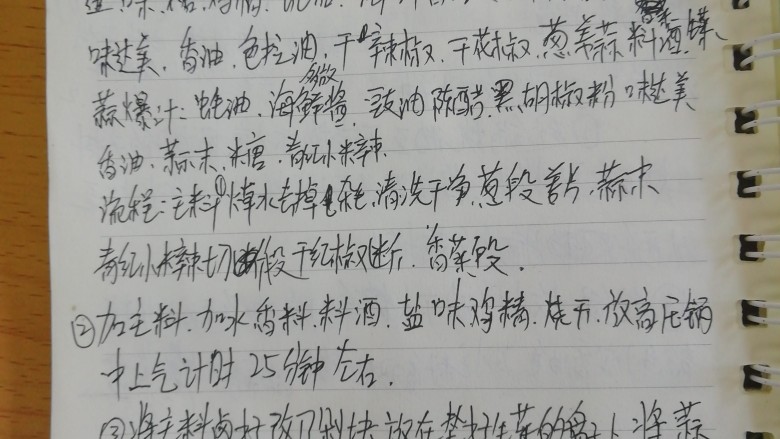 味达美、香油、色拉油、干辣椒、干花椒、葱姜蒜料酒、
蒜爆汁：蚝油、海鲜酱、豉油陈醋、黑胡椒粉味达美
微
香油、蒜末、糖、青红小米辣
流程：主料①焯水去掉杂，清洗干净，葱段姜片、蒜末
青红小米辣切段干红椒断、香菜段。
②加主料、加水香料、料酒、盐味鸡精、烧开、放高压锅
中上气计时25分钟左右。
③将主料卤好改刀块放在垫好生菜的盘上、将蒜